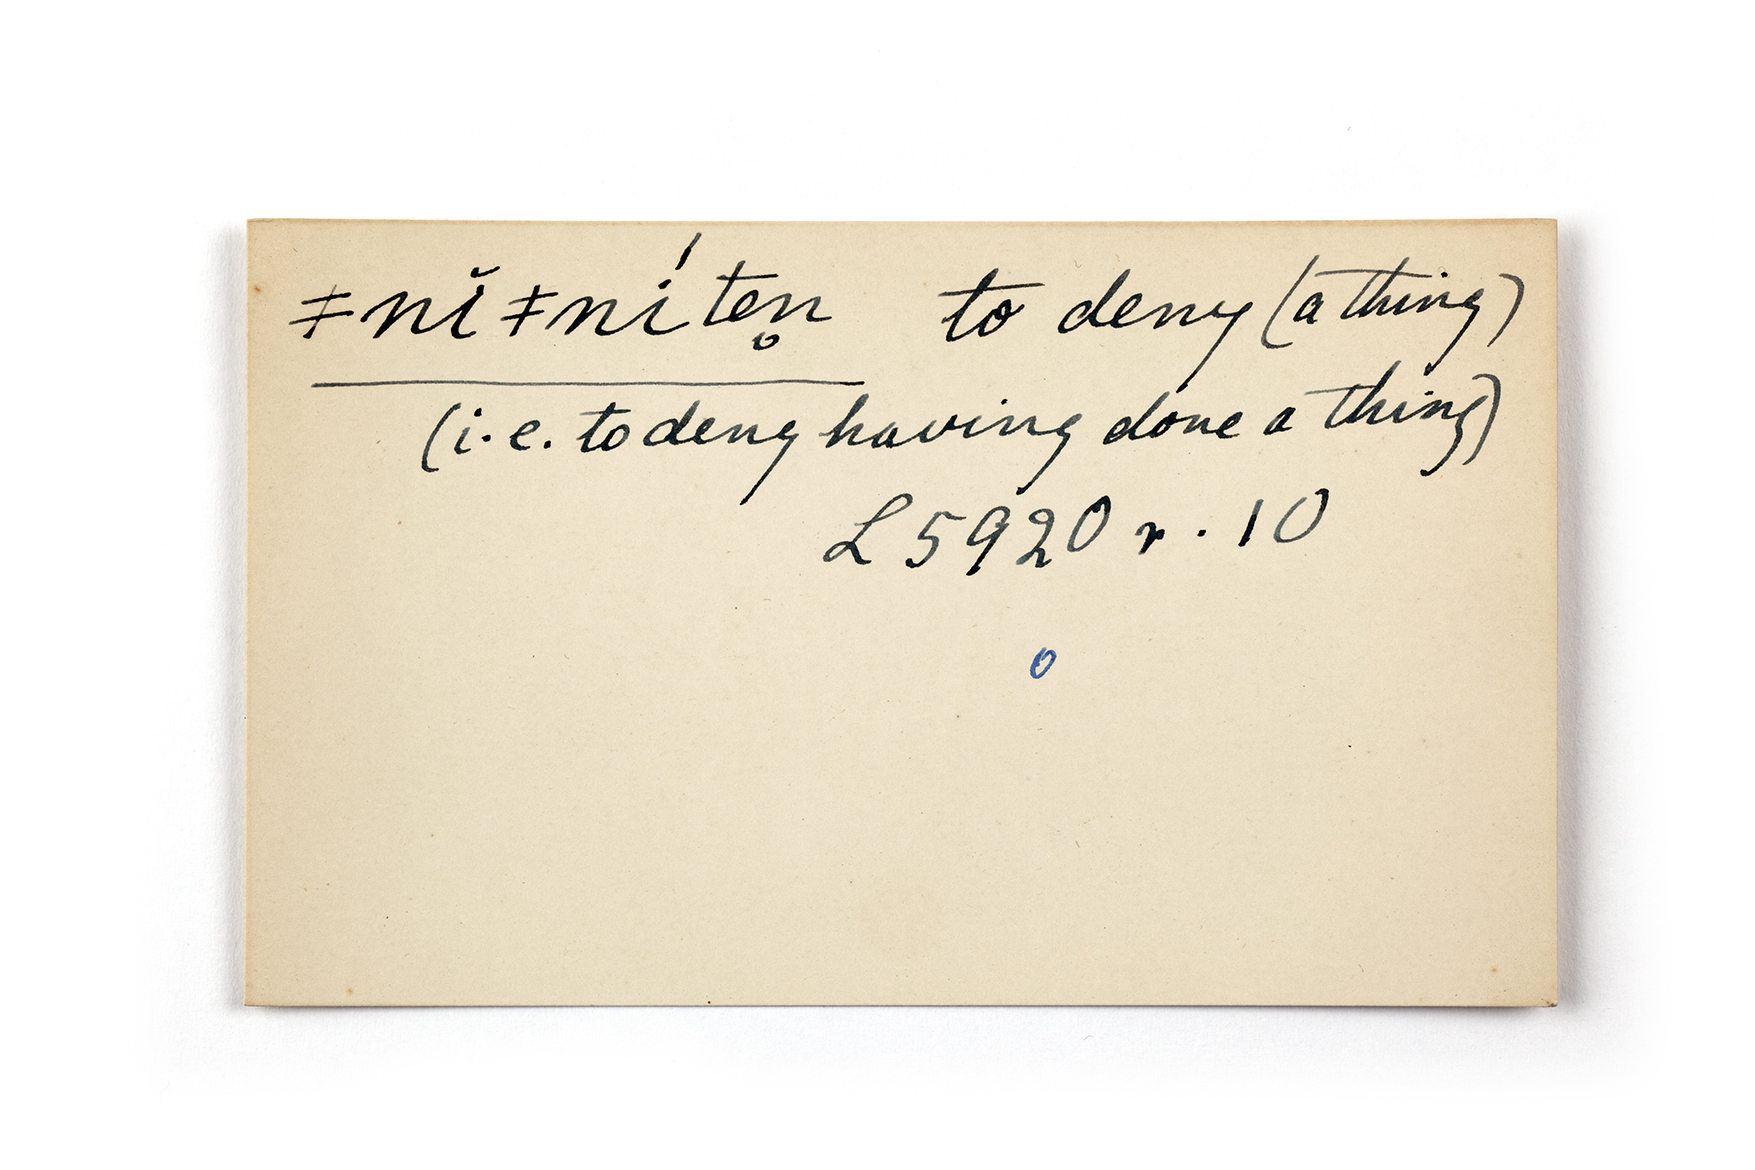 ǂnĭ ǂní ten̥ to deny (a thing)
(i.e. to deny having done a thing)
L 5920 r. 10
o